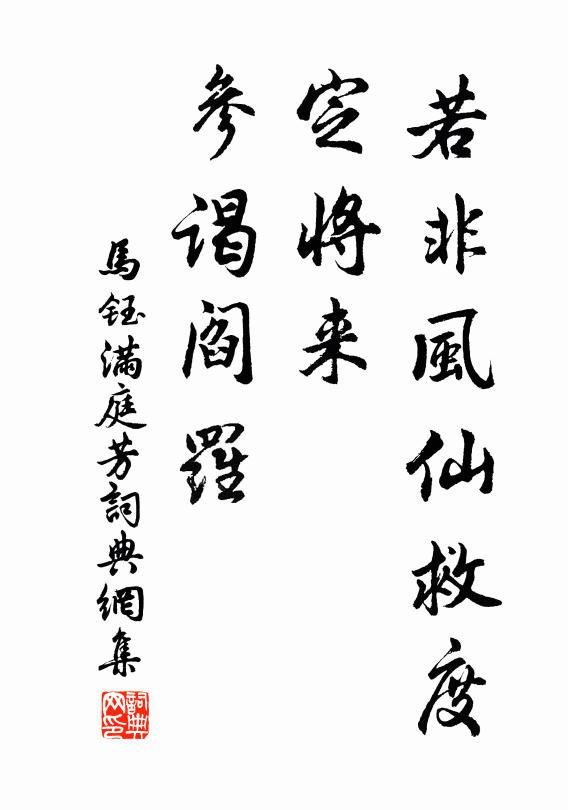 若非風仙救度
定將来
參謁閻羅
馬鈺滿庭芳詞典網集
詞典網印